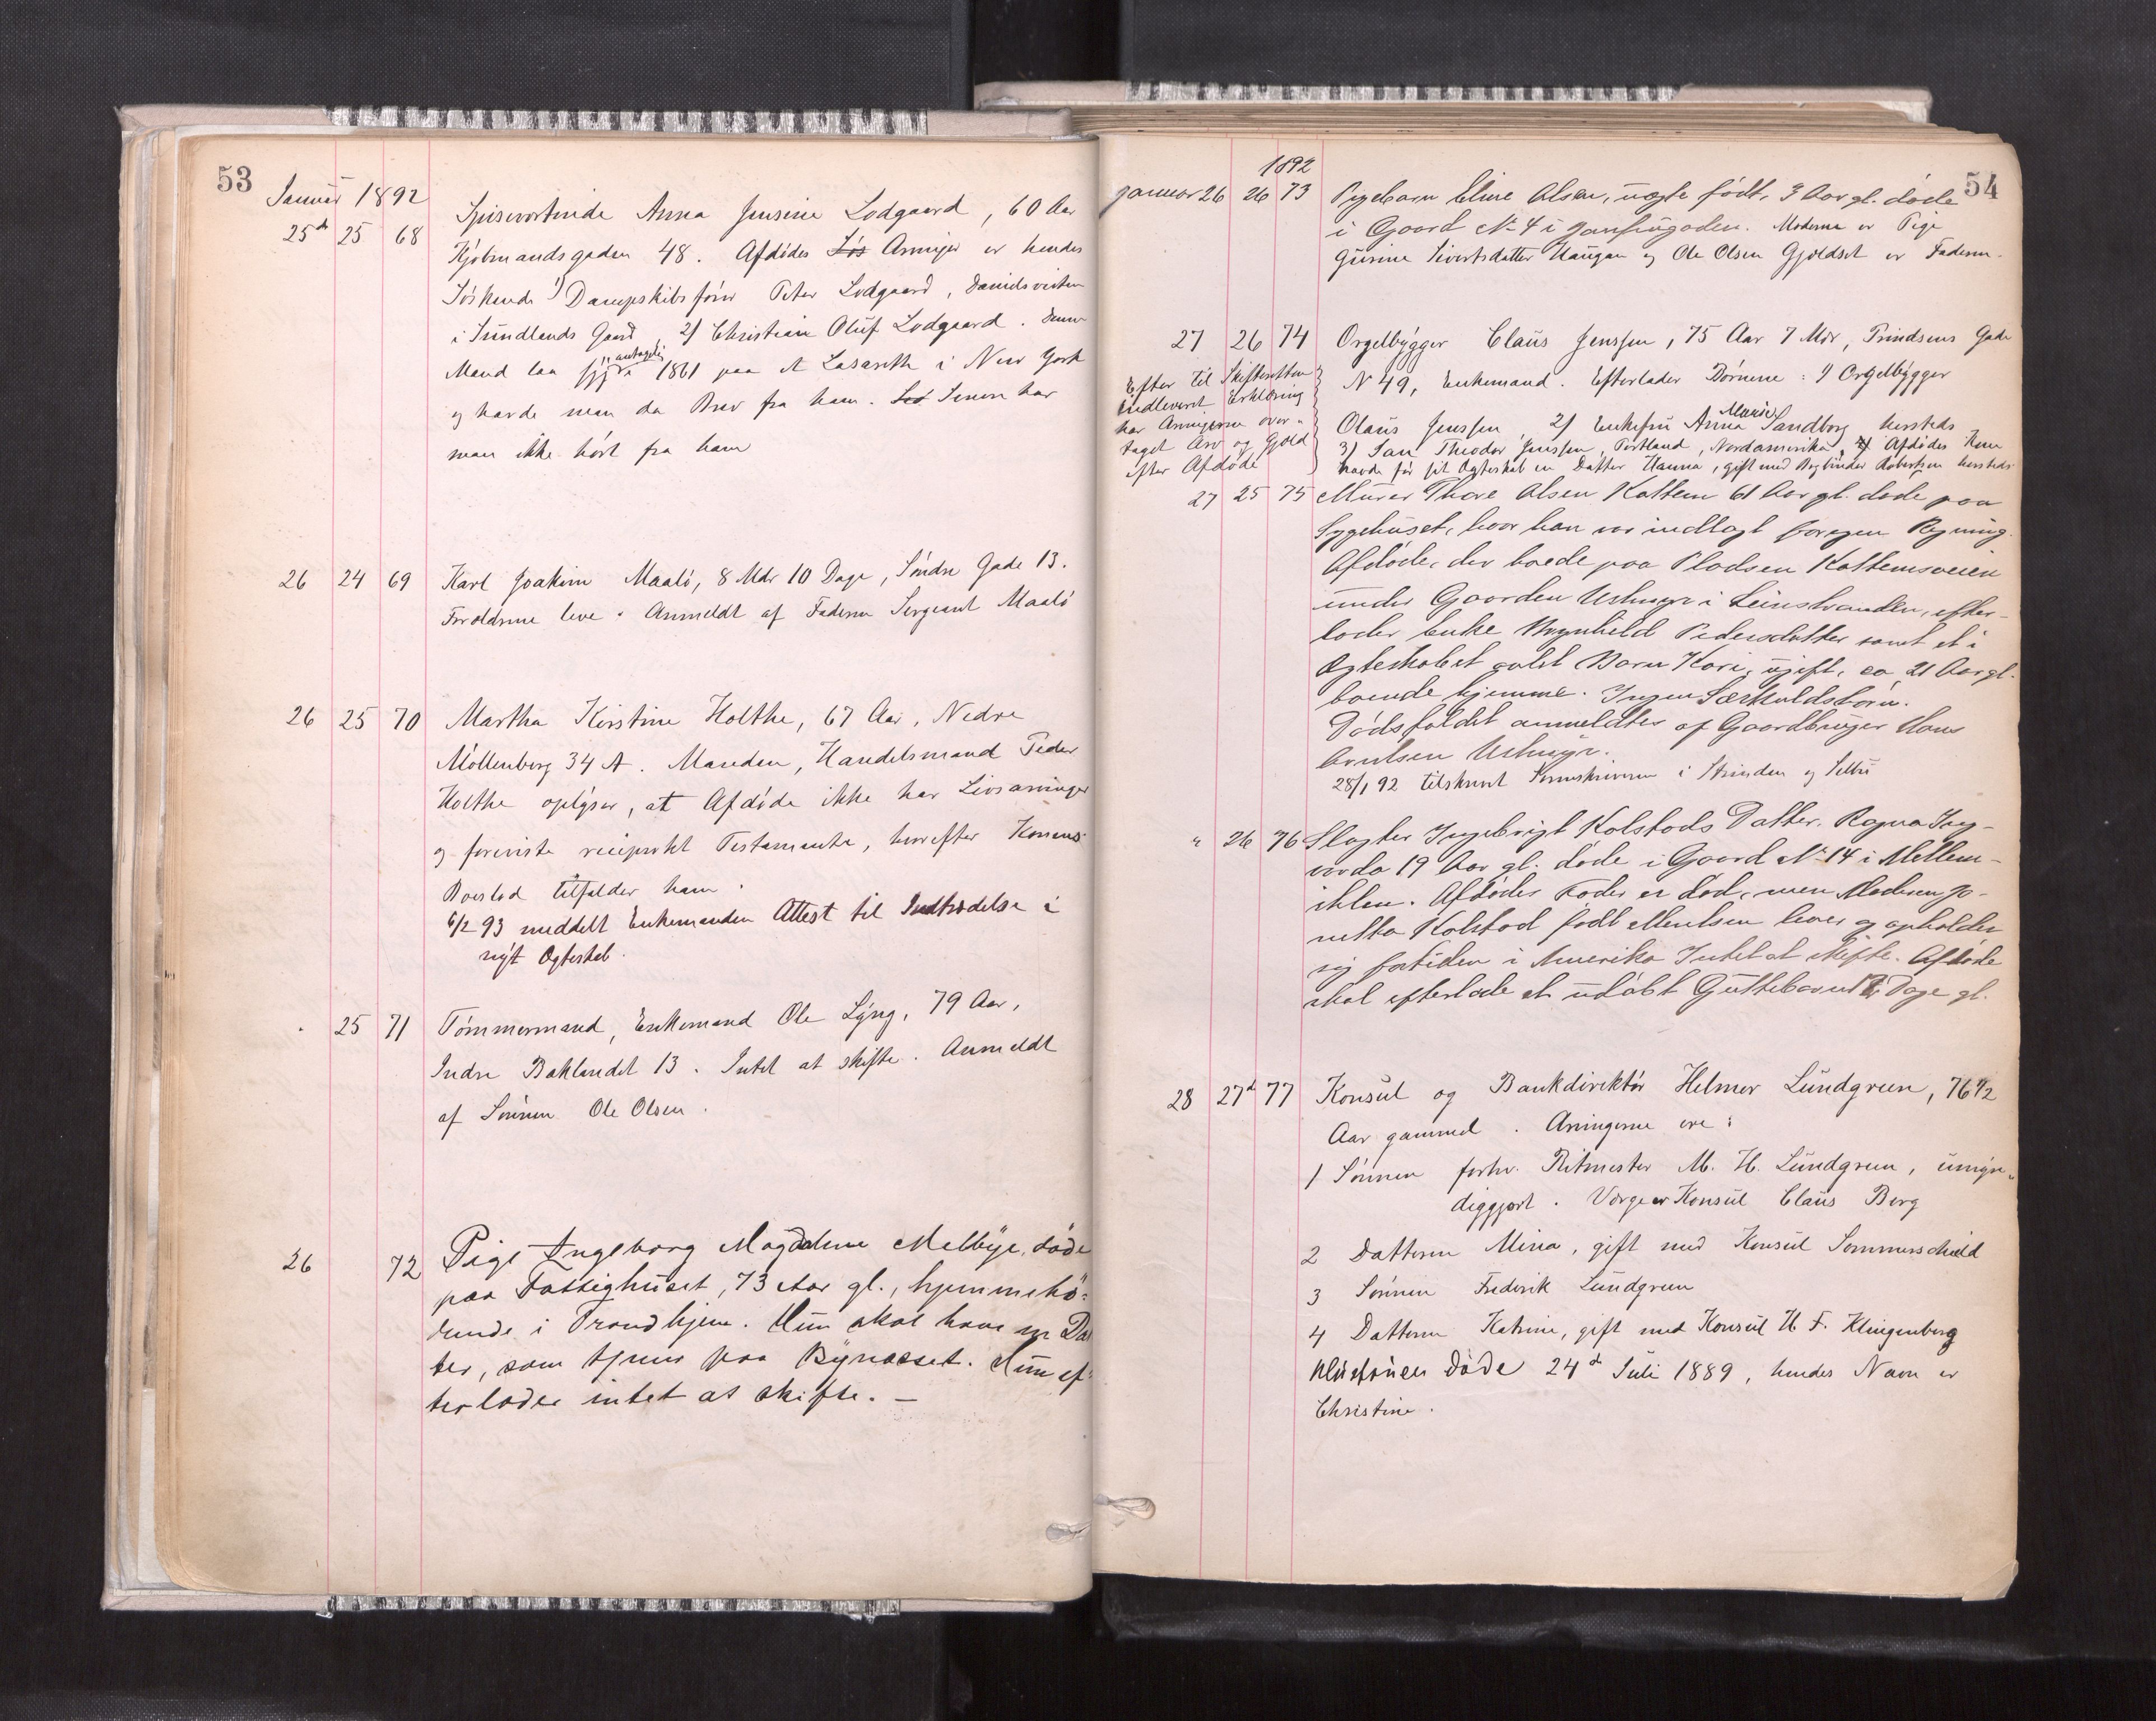 53
Januar 1892
25de 25 68 Spisevertinde Anna Jensine Lodgaard, 60 Aar
Kjöbmandsgaden 48. Afdödes Lös Arvinger er hendes
Söskende 1) Dampskibsförer Peter Lodgaard, Danielsveiten
i Sundlands Gaard, 2) Christian Oluf Lodgaard. Denne
Mand laa syg i antagelig 1861 paa et Lasareth i New York
og havde man da Brev fra ham. Senere har
man ikke hört fra ham
26 24 69 Karl Joakim Maalö, 8 Mdr 10 Dage, Söndre Gade 13.
Forældrene leve. Anmeldt af Faderen Sergeant Maalö
26 25 70 Martha Kirstine Holthe, 67 Aar, Nedre
Möllenberg 34 A. Manden, Handelsmand Peder
Holthe oplyser, at Afdöde ikke har Livsarvinger
og foreviste reciprokt Testamente, hvorefter Konens
Boeslod tilfalder ham.
6/2 93 meddelt Enkemanden Attest til Indtrædelse i
nyt Ægteskab.
" 25 71 Tömmermand, Enkemand Ole Lyng, 79 Aar,
Indre Baklandet 13. Intet at skifte. Anmeldt
af Sönnen Ole Olsen.
26 72 Pige Ingeborg Magdalene Melbye, döde
paa Fattighuset, 73 Aar gl., hjemmehö-
rende i Trondhjem. Hun skal have en Dat
ter, som tjener paa Bynæsset. Hun ef-
terlader intet at skifte. —
54
1892
Januar 26 26 73 Pigebarn Eline Olsen, uægte födt, 3 Aar gl. döde
i Gaard No 4 i Jonsvegaden. Moderen er Pige
Gurine Sivertsdatter Haugan og Ole Olsen Gjeldset er Faderen.
27 26 74 Orgelbygger Claus Jenssen, 75 Aar 7 Mdr, Prindsens Gade
N 49, Enkemand. Efterlader Börnene: 1) Orgelbygger
Olaus Jenssen 2) Enkefru Anna Marie Sandborg hersteds
3) Jan Theodor Jenssen, Portland, Nordamerika, Afdödes Kone
havde för sit Ægteskab en Datter Hanna, gift med Bogbinder Robertsen hersteds.
Efter til Skifteretten
indleveret Erklæring
har Arvingerne over-
taget Arv og Gjæld
efter Afdöde
27 25 75 Murer Thore Olsen Kattem 61 Aar gl. döde paa
Sygehuset, hvor han var indlagt for egen Regning.
Afdöde, der boede paa Pladsen Kattemsveien
under Gaarden Ustmyr i Leinstranden, efter-
lader Enke Brynhild Pedersdatter samt et i
Ægteskabet avlet Barn Kari, ugift, ca 21 Aar gl.
boende hjemme. Ingen Særkuldsbörn.
Dödsfaldet anmeldtes af Gaardbruger Hans
Arntsen Ustmyr.
28/1 92 tilskrevet Sorenskriveren i Strinden og Selbu
" 26 76 Slagter Ingebrigt Kolstads Datter. Ragna Ing-
varda 19 Aar gl. döde i Gaard No 14 i Mellem-
ihlen. Afdödes Fader er död, men Moderen Jo-
netta Kolstad födt Arntsen lever og opholder
sig fortiden i Amerika Intet at skifte. Afdöde
skal efterlade et udöbt Guttebarn Dage gl.
28 27d 77 Konsul og Bankdirektör Helmer Lundgreen, 76 1/2
Aar gammel. Arvingerne ere:
1 Sönnen forhv. Ritmester M. H. Lundgreen, umyn-
diggjort. Værge er Konsul Claus Berg
2 Datteren Mina, gift med Konsul Sommerschield
3 Sönnen Frederik Lundgreen
4 Datteren Katrine, gift med Konsul H. F. Klingenberg
Hustruen döde 24d Juli 1889, hendes Navn er
Christine.